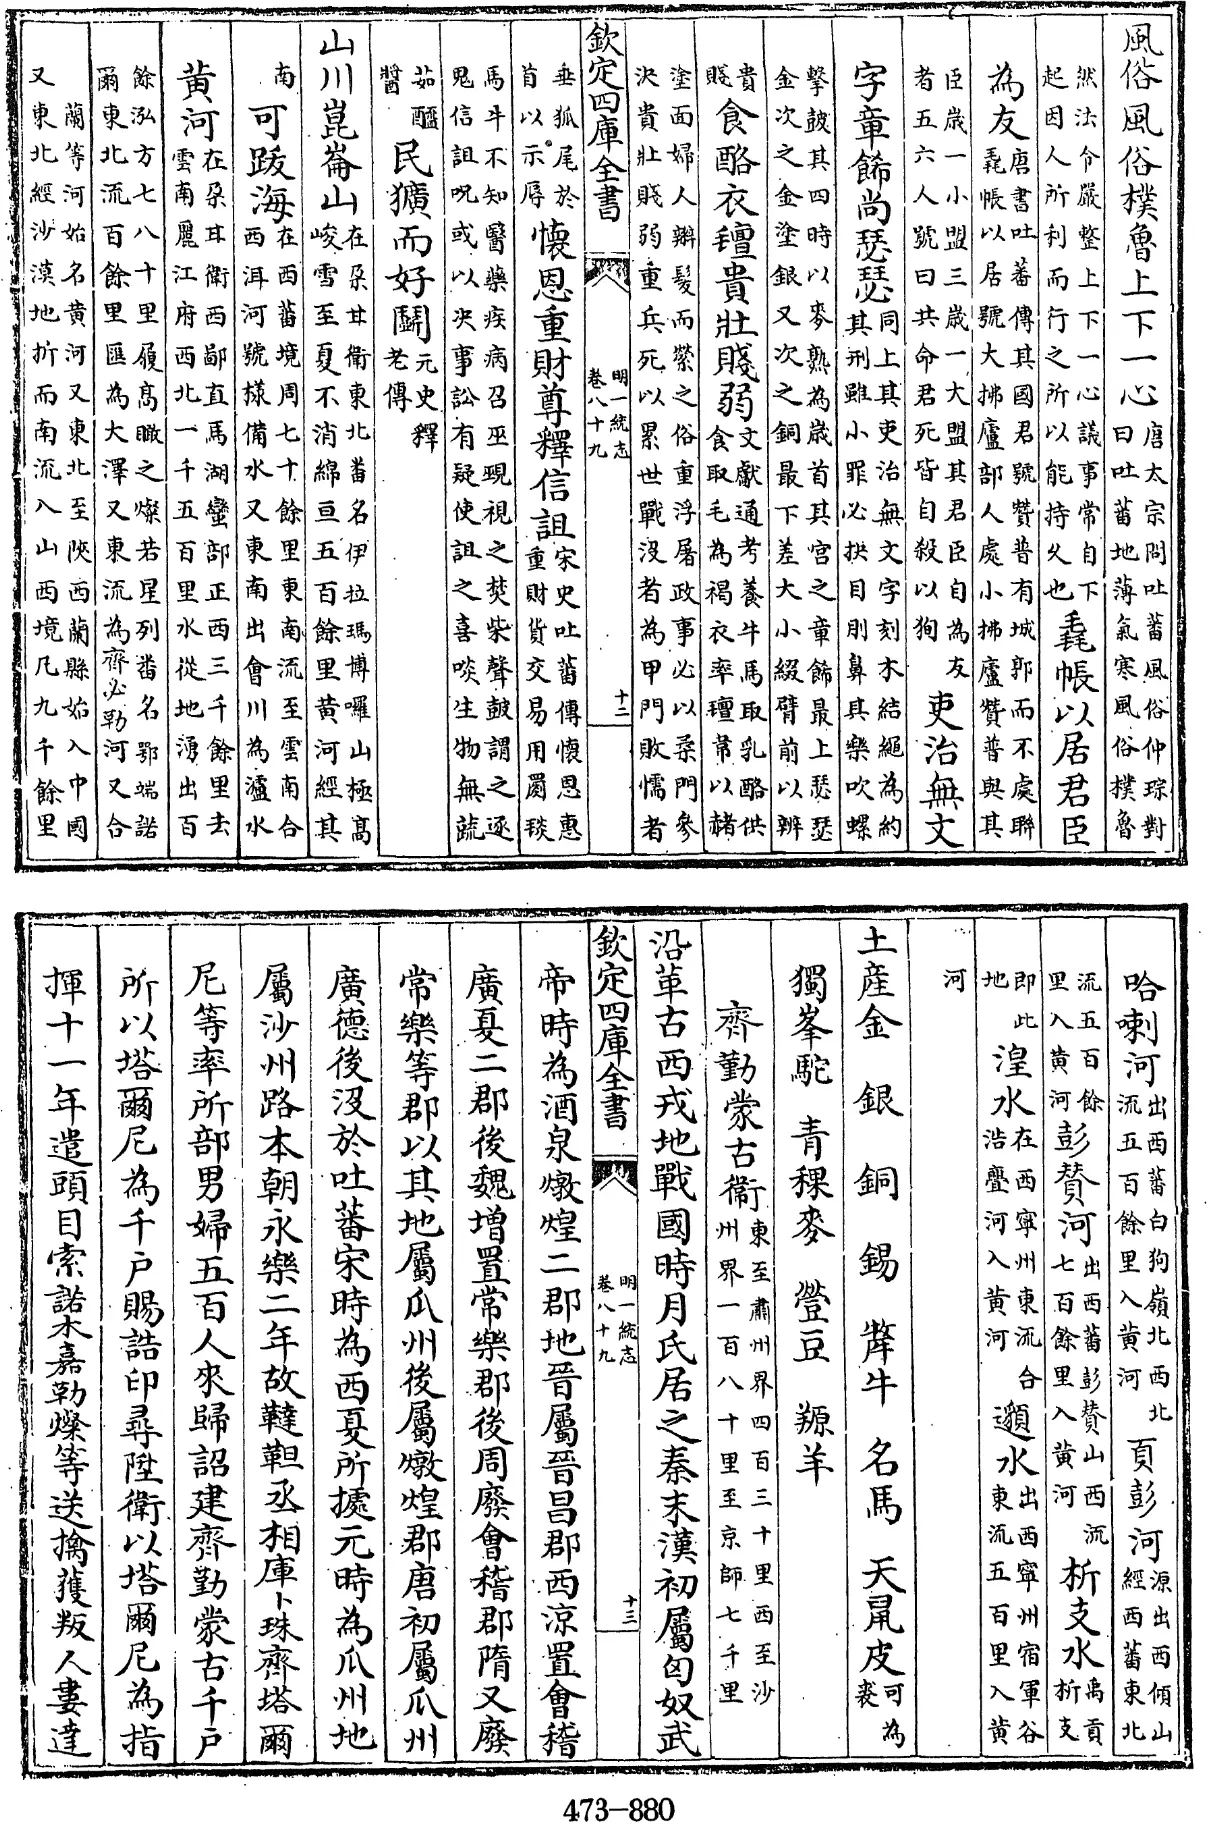 風俗風俗樸魯上下一心唐太宗問吐蕃風俗仲琮對曰吐蕃地薄氣寒風俗樸魯
然法令嚴整上下一心議事常自下起因人所利而行之所以能持久也毳帳以居君臣
為友唐書吐蕃傳其國君號贊普有城郭而不處聯毳帳以居號大拂廬部人處小拂廬贊普與其
臣歲一小盟三歲一大盟其君臣自為友者五六人號曰共命君死皆自殺以狥吏治無文
字章飾尚瑟瑟同上其吏治無文字刻木結繩為約其刑雖小罪必抉目刖鼻其樂吹螺
擊鼓其四時以麥熟為歲首其官之章飾最上瑟瑟金次之金塗銀又次之銅最下差大小綴臂前以辨
貴賤食酪衣氊貴壯賤弱文獻通考養牛馬取乳酪供食取毛為褐衣率氊常以赭
塗面婦人辮髮而縈之俗重浮屠政事必以桑門參決貴壯賤弱重兵死以累世戰沒者為甲門敗懦者
欽定四庫全書 明一統志 卷八十九 十二
垂狐尾於首以示辱懷恩重財尊釋信詛宋史吐蕃傳懷恩惠重財貨交易用罽毯
馬牛不知醫藥疾病召巫覡視之焚柴聲鼓謂之逐鬼信詛呪或以決事訟有疑使詛之喜啖生物無蔬
茹醯醬民獷而好鬭元史釋老傳
山川崑崙山在朶甘衛東北番名伊拉瑪博囉山極高峻雪至夏不消綿亘五百餘里黄河經其
南可跋海在西蕃境周七十餘里東南流至雲南合西洱河號様備水又東南出會川為瀘水
黄河在朶甘衛西鄙直馬湖蠻部正西三千餘里去雲南麗江府西北一千五百里水從地湧出百
餘泓方七八十里履高瞰之燦若星列番名鄂端諾爾東北流百餘里匯為大澤又東流為齊必勒河又合
蘭等河始名黄河又東北至陜西蘭縣始入中國又東北經沙漠地折而南流入山西境凡九千餘里
哈喇河出西蕃白狗嶺北西北流五百餘里入黄河頁彭河源出西傾山經西蕃東北
流五百餘里入黄河彭贊河出西蕃彭贊山西流七百餘里入黄河析支水禹貢析支
即此地湟水在西寧州東流合浩亹河入黄河邈水出西寧州宿軍谷東流五百里入黄
河
土產金 銀 銅 錫 犛牛 名馬 天鼠皮可為裘
獨峯駝 青稞麥 䝁豆 羱羊
齊勤蒙古衛東至肅州界四百三十里西至沙州界一百八十里至京師七千里
沿革古西戎地戰國時月氏居之秦末漢初屬匈奴武
欽定四庫全書 明一統志 卷八十九 十三
帝時為酒泉燉煌二郡地晉屬晉昌郡西涼置會稽
廣夏二郡後魏增置常樂郡後周廢會稽郡隋又廢
常樂等郡以其地屬瓜州後屬燉煌郡唐初屬瓜州
廣德後沒於吐蕃宋時為西夏所據元時為瓜州地
屬沙州路本朝永樂二年故韃靼丞相庫卜珠齊塔爾
尼等率所部男婦五百人來歸詔建齊勤蒙古千戶
所以塔爾尼為千戶賜誥印尋陞衛以塔爾尼為指
揮十一年遣頭目索諾木嘉勒燦等送擒獲叛人婁達
473-880